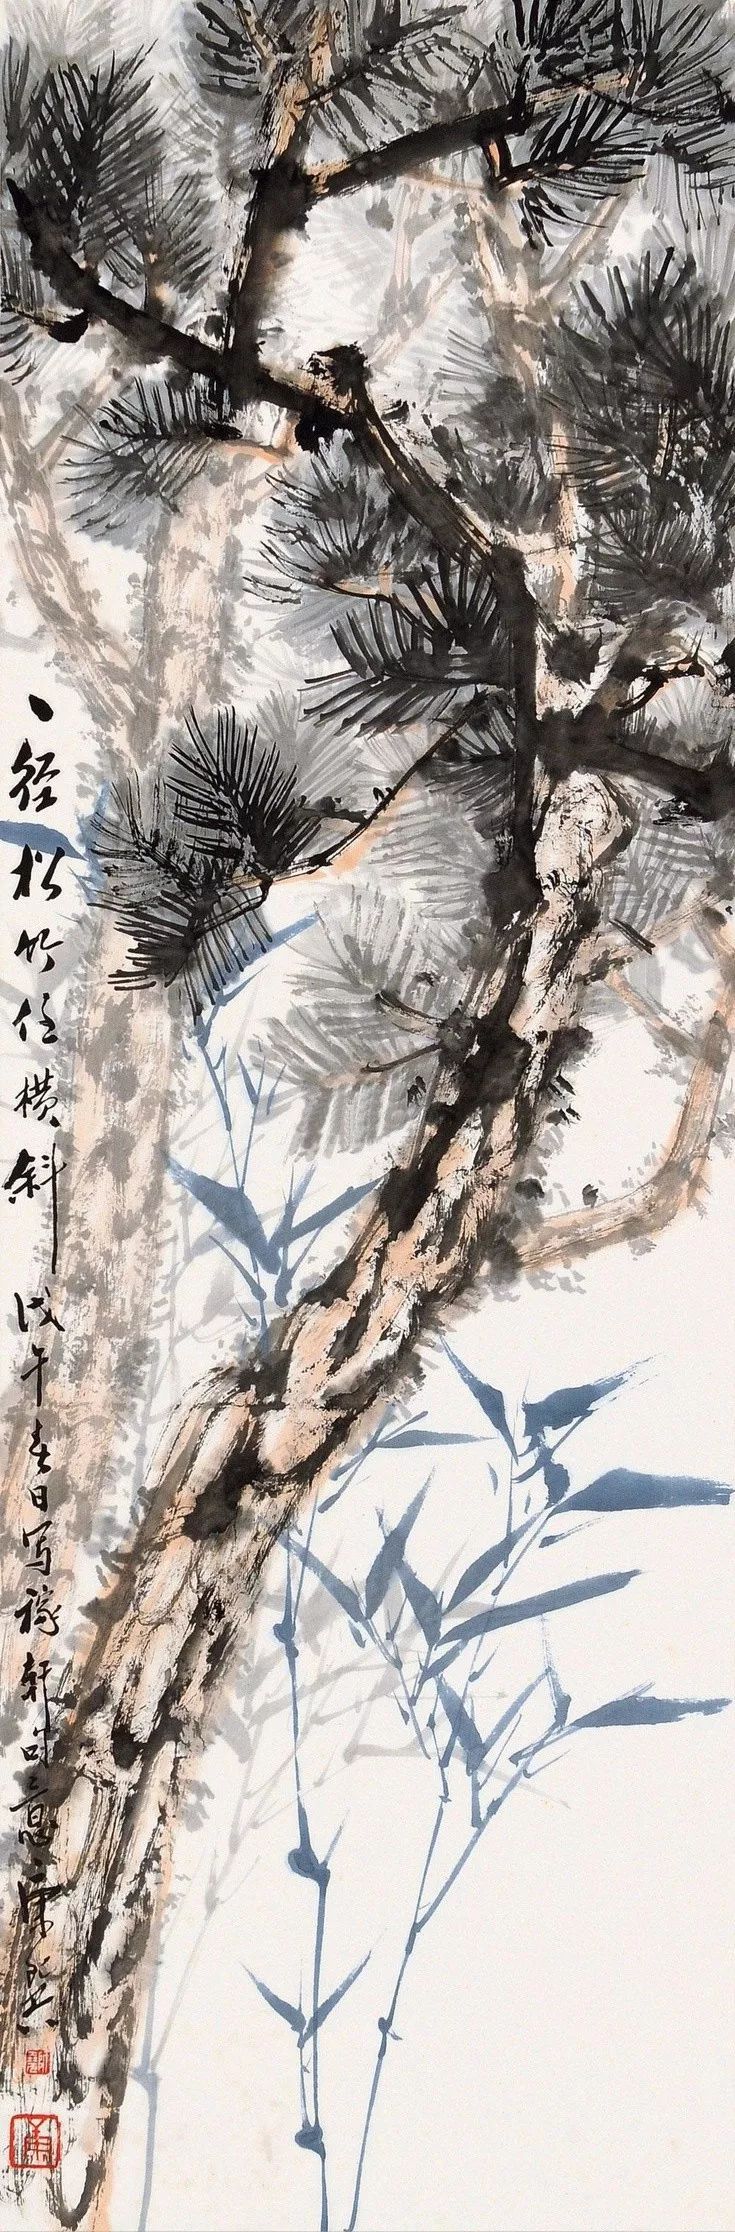 一径松竹任横斜戊午春日写稼轩意康